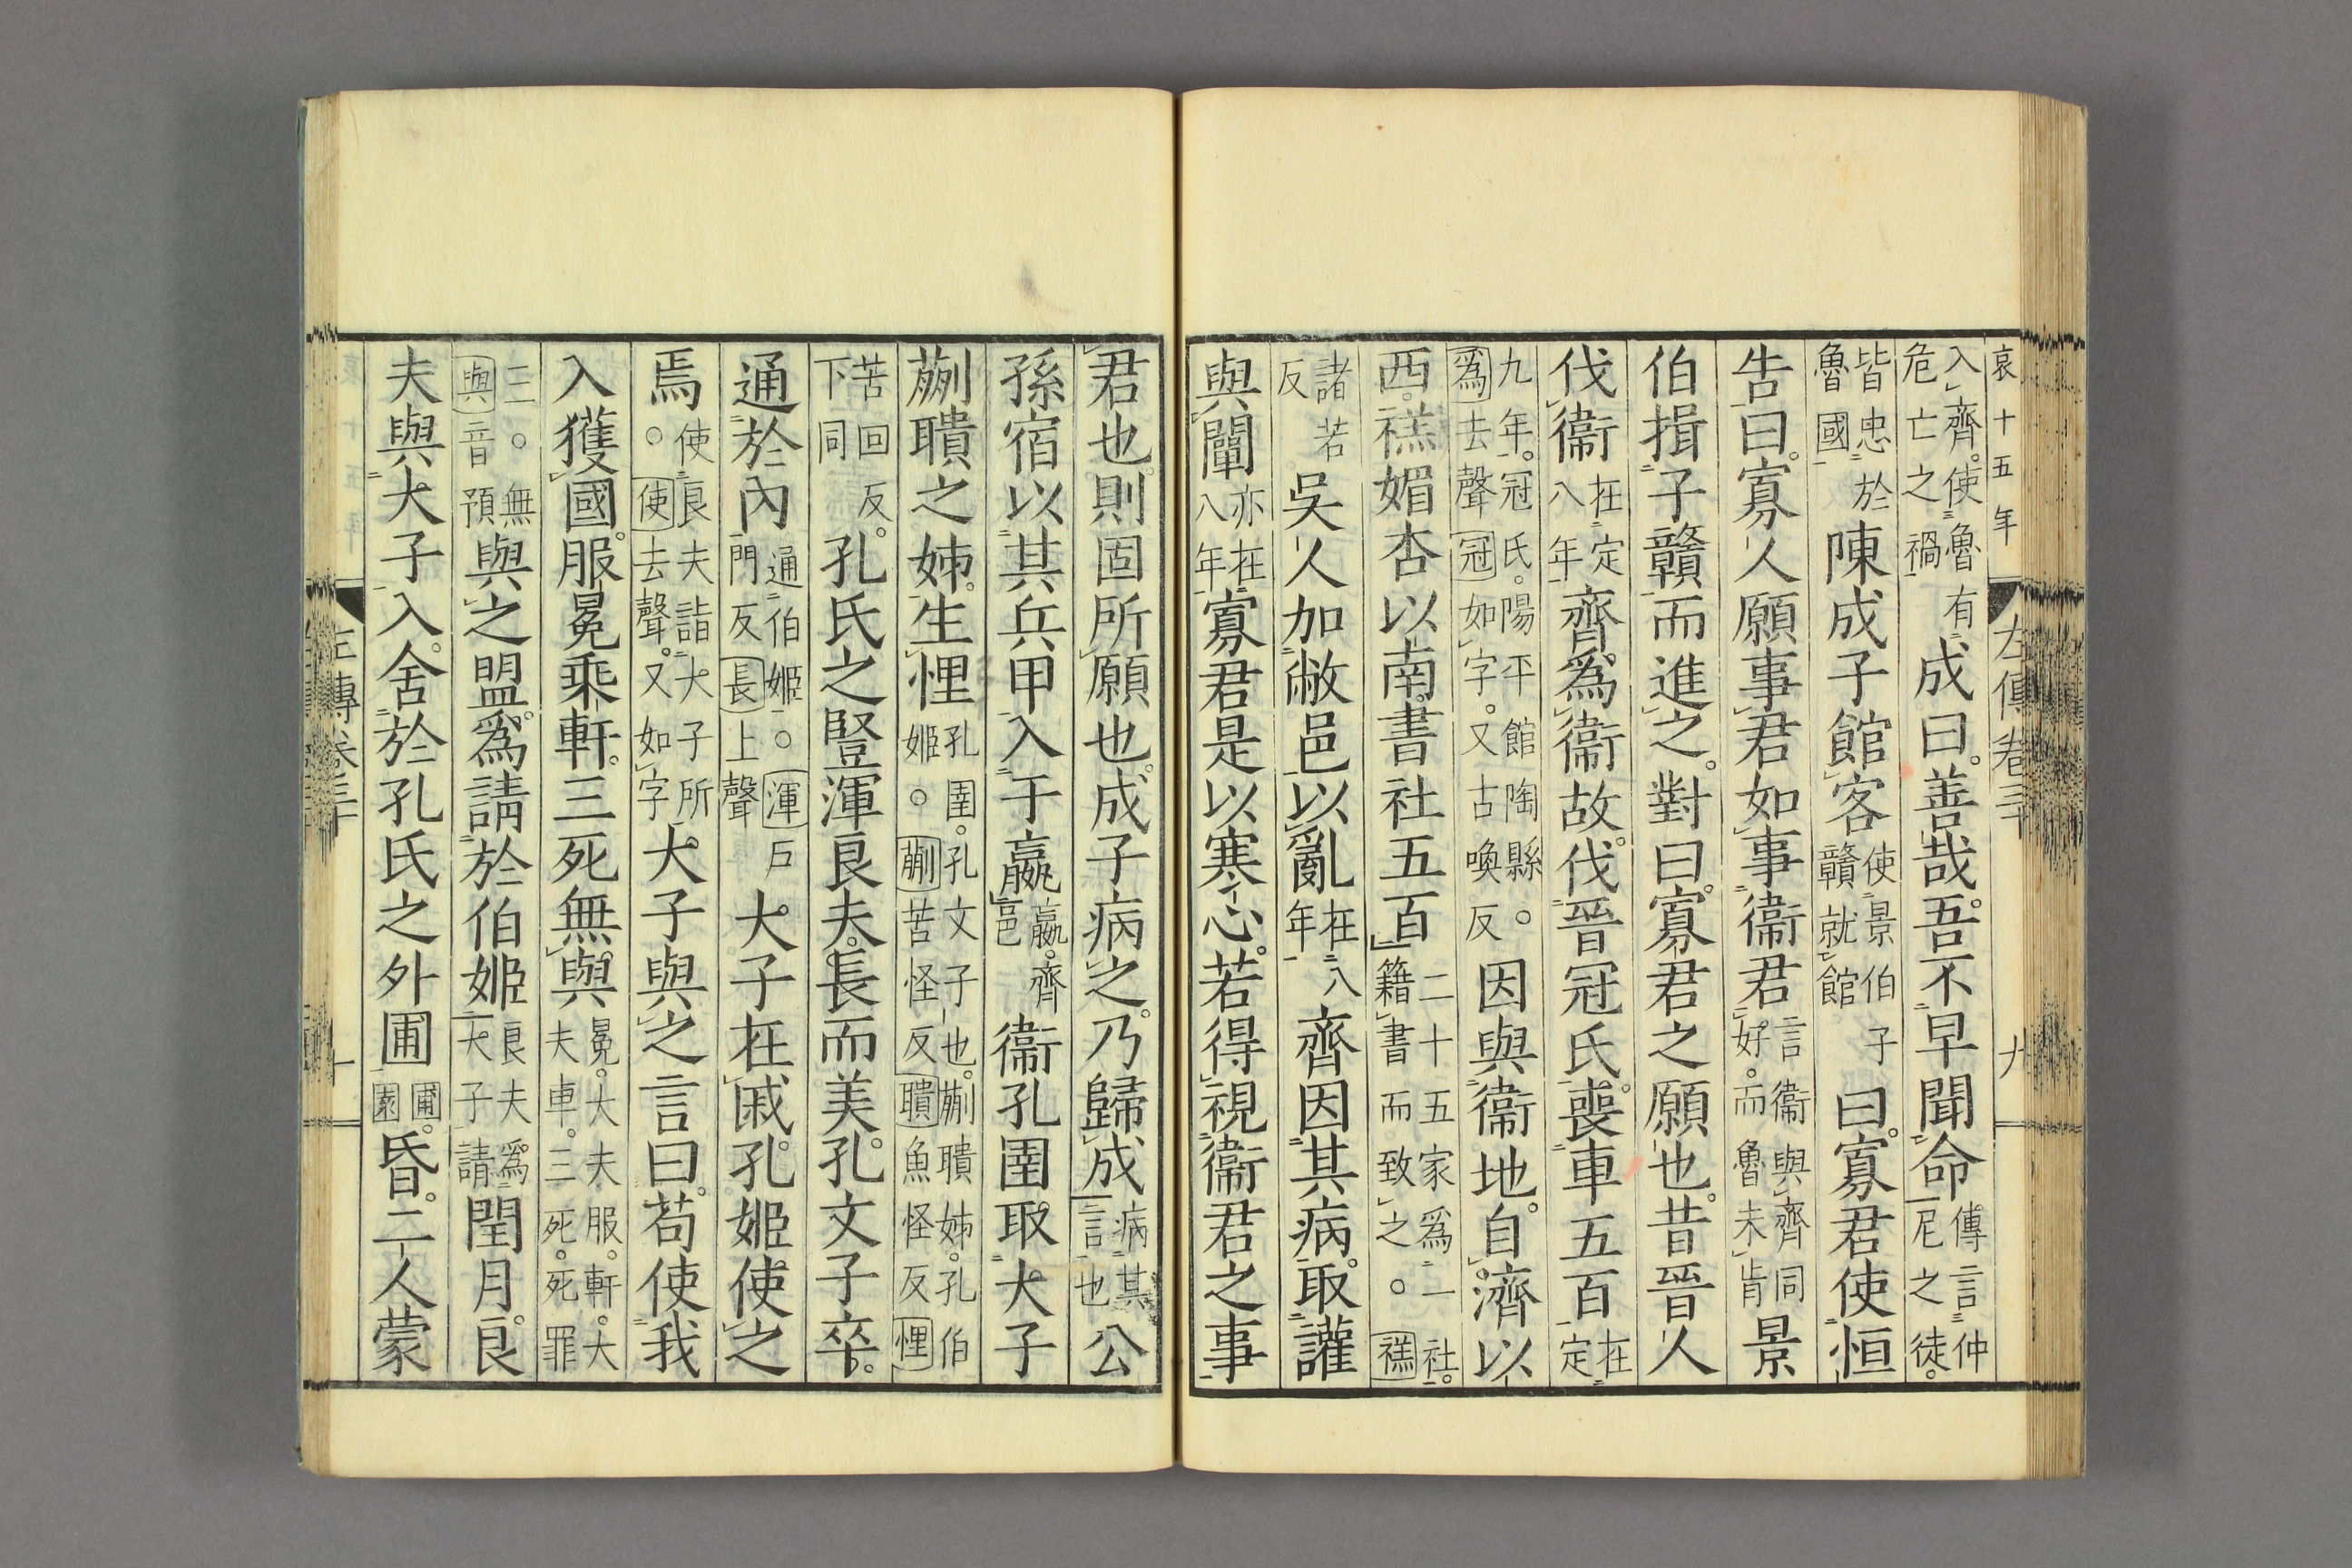 哀十五年
左傳卷三十
九
入齊使魯有危亡之禍成曰善哉吾不早聞命傳言仲尼之徒
皆忠於魯國陳成子館客使景伯子贛就館曰寡君使恒
告曰寡人願事君如事衞君言衞與齊同好而魯未肯景
伯揖子贛而進之對曰寡君之願也昔晉人
伐衞在定八年齊爲衞故伐晉冠氏喪車五百在定
九年冠氏陽平館陶縣○爲去聲冠如字又古喚反因與衞地自濟以
西禚媚杏以南書社五百二十五家爲一社籍書而致之○禚
諸若反吳人加敝邑以亂在八年齊因其病取讙
與闡亦在八年寡君是以寒心若得視衞君之事
君也則固所願也成子病之乃歸成病其言也公
孫宿以其兵甲入于嬴嬴齊邑衞孔圉取大子
蒯聵之姊生悝孔圉孔文子也蒯聵姊孔伯姬○蒯苦怪反聵魚怪反悝
苦回反下同孔氏之豎渾良夫長而美孔文子卒
通於內通伯姬○渾戶門反長上聲大子在戚孔姬使之
焉使良夫詣大子所○使去聲又如字大子與之言曰苟使我
入獲國服冕乘軒三死無與冕大夫服軒大夫車三死死罪
三○無與音預與之盟爲請於伯姬良夫爲大子請閏月良
夫與大子入舍於孔氏之外圃圃園昏二人蒙